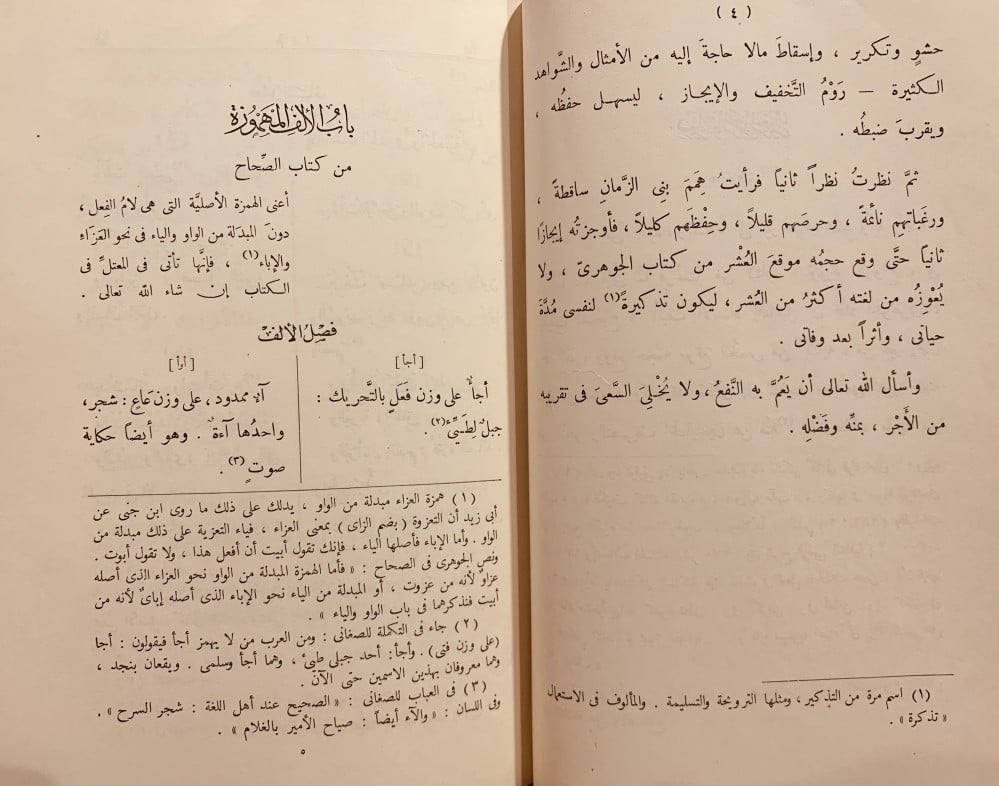 ( ٤ )
حشوٍ وتكرير ، وإسقاطَ مالا حاجةَ إليه من الأمثال والشَّواهد
الكثيرة — رَوْمُ التَّخفيف والإيجاز ، ليسهل حفظُه ،
ويقربَ ضبطُه .
ثمَّ نظرتُ نظراً ثانياً فرأيتُ هِمَمَ بنِى الزَّمانِ ساقطةً ،
ورغَباتهِم نائمةً ، وحرصَهم قليلاً ، وحِفْظهم كليلاً ، فأوجزتُه إيجازًا
ثانيًا حتَّى وقع حجمُه موقعَ العُشْر من كتاب الجوهرىّ ، ولا
يُعْوِزُه من لغته أكثرُ من العُشر ، ليكون تذكيرةً (١) لنفسى مُدَّةَ
حياتى ، وأثراً بعد وفاتى .
وأسأل الله تعالى أن يَعُمَّ به النَّفعُ ، ولا يُخْلِىَ السَّعىَ فى تقريبه
من الأَجْر ، بمنِّه وفَضْلِه .
(١) اسم مرة من التذكير ، ومثلها الترويحة والتسليمة . والمألوف فى الاستعمال
« تذكرة » .
بابُ الألِف المهموزة
من كتاب الصِّحاح
أعنى الهمزة الأصليَّة التى هى لامُ الفِعل ،
دونَ المبدَلة من الواو والياء فى نحو العَزَاء
والإباء (١) ، فإنَّها تأتى فى المعتلّ فى
الكتاب إن شاء الله تعالى .
فصْل الألِف
[ أجأ ]
أجأٌ على وزن فَعَلٍ بالتَّحريك :
جبلٌ لِطَيِّىءٍ (٢) .
[ أوأ ]
آءٌ ممدود ، على وزن عَاعٍ : شجر ،
واحدُها آءةٌ . وهو أيضاً حكاية
صوتٍ (٣) .
(١) همزة العزاء مبدلة من الواو ، يدلك على ذلك ما روى ابن جنى عن
أبى زيد أن التعزوة ( بضم الزاى ) بمعنى العزاء ، فياء التعزية على ذلك مبدلة من
الواو . وأما الإباء فأصلها الياء ، فإنك تقول أبيت أن أفعل هذا ، ولا تقول أبوت .
ونص الجوهرى فى الصحاح : « فأما الهمزة المبدلة من الواو نحو العزاء الذى أصله
عزاوٌ لأنه من عزوت ، أو المبدلة من الياء نحو الإباء الذى أصله إباىٌ لأنه من
أبيت فنذكرهما فى باب الواو والياء » .
(٢) جاء فى التكملة للصغانى : ومن العرب من لا يهمز أجأ فيقولون : أجا
(على وزن فتى) . وأجأ : أحد جبلى طىء ، وهما أجأ وسلمى . ويقعان بنجد ،
وهما معروفان بهذين الاسمين حتى الآن .
(٣) فى العباب للصغانى : « الصحيح عند أهل اللغة : شجر السرح » .
وفى اللسان : « والآء أيضاً : صياح الأمير بالغلام » .
٥